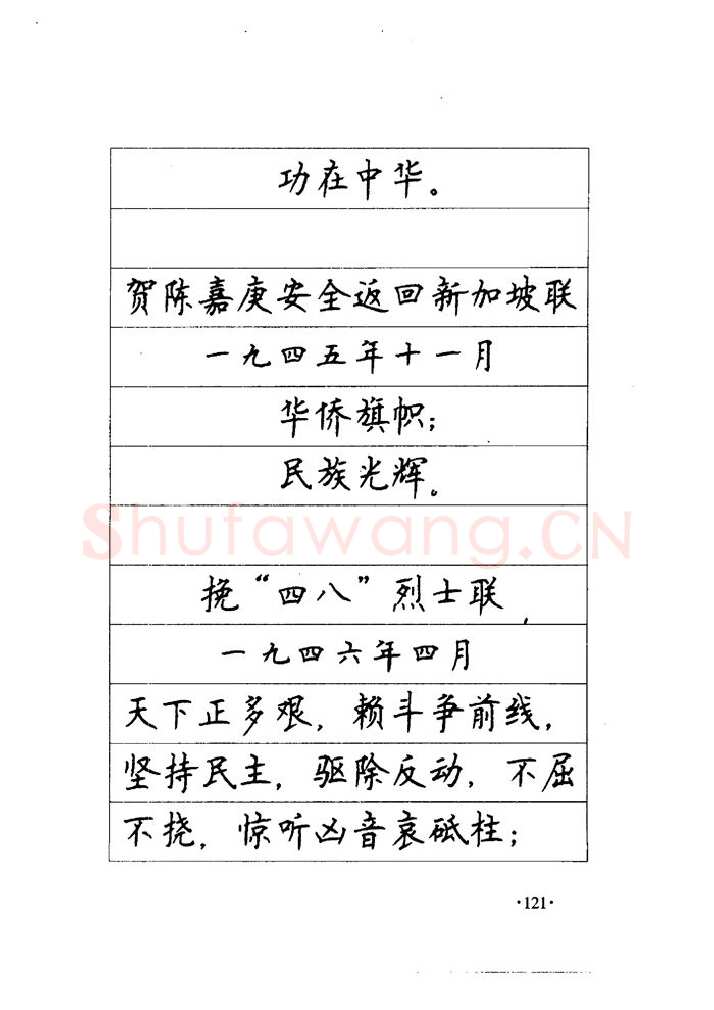 功在中华。
贺陈嘉庚安全返回新加坡联
一九四五年十一月
华侨旗帜；
民族光辉。
Shufawang.CN
挽“四八”烈士联
一九四六年四月
天下正多艰，赖斗争前线，
坚持民主，驱除反动，不屈
不挠，惊听凶音哀砥柱；
·121·